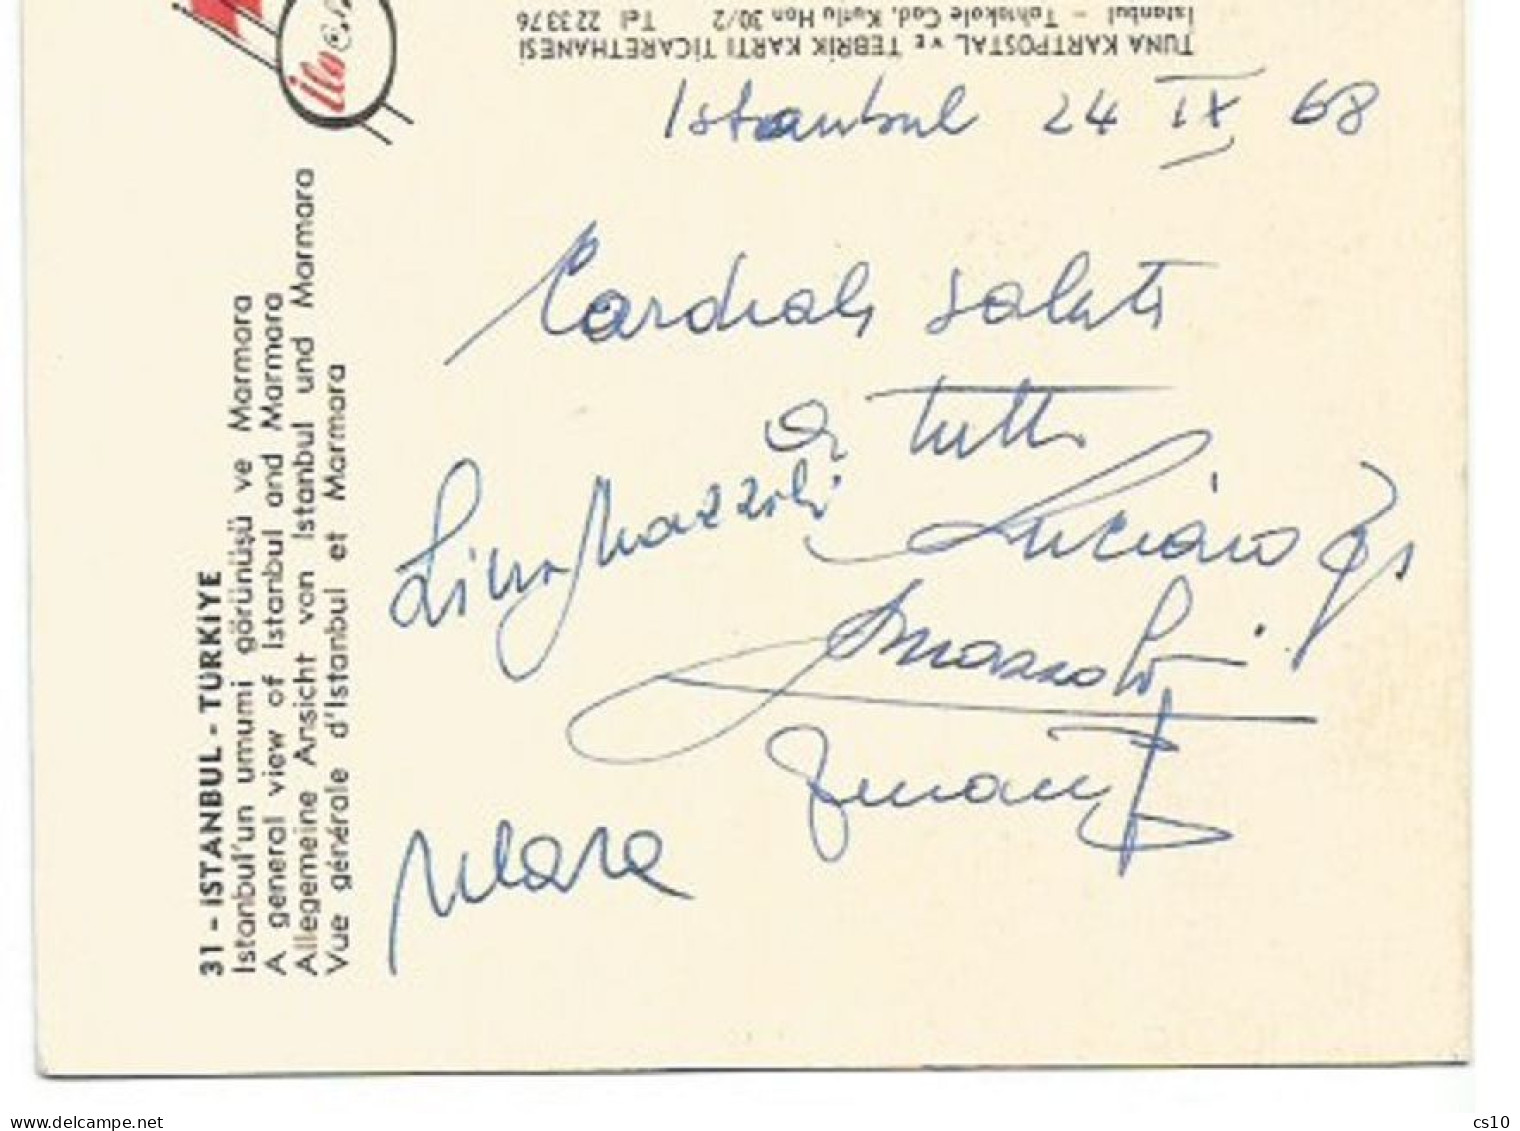 TUNA KARTPOSTAL ve TEBRİK KARTI TİCARETHANESİ
İstanbul – Tahtakale Cad. Kutlu Han 30/2 Tel 22 33 76
31 - İSTANBUL - TÜRKİYE
İstanbul'un umumi görünüşü ve Marmara
A general view of İstanbul and Marmara
Allegemeine Ansicht von İstanbul und Marmara
Vue générale d'İstanbul et Marmara
Istanbul 24 IX 68
Cordiali saluti
a tutti
Lina Mazzoli
Luciano
Mazzoli
Mara
delcampe.net
cs10